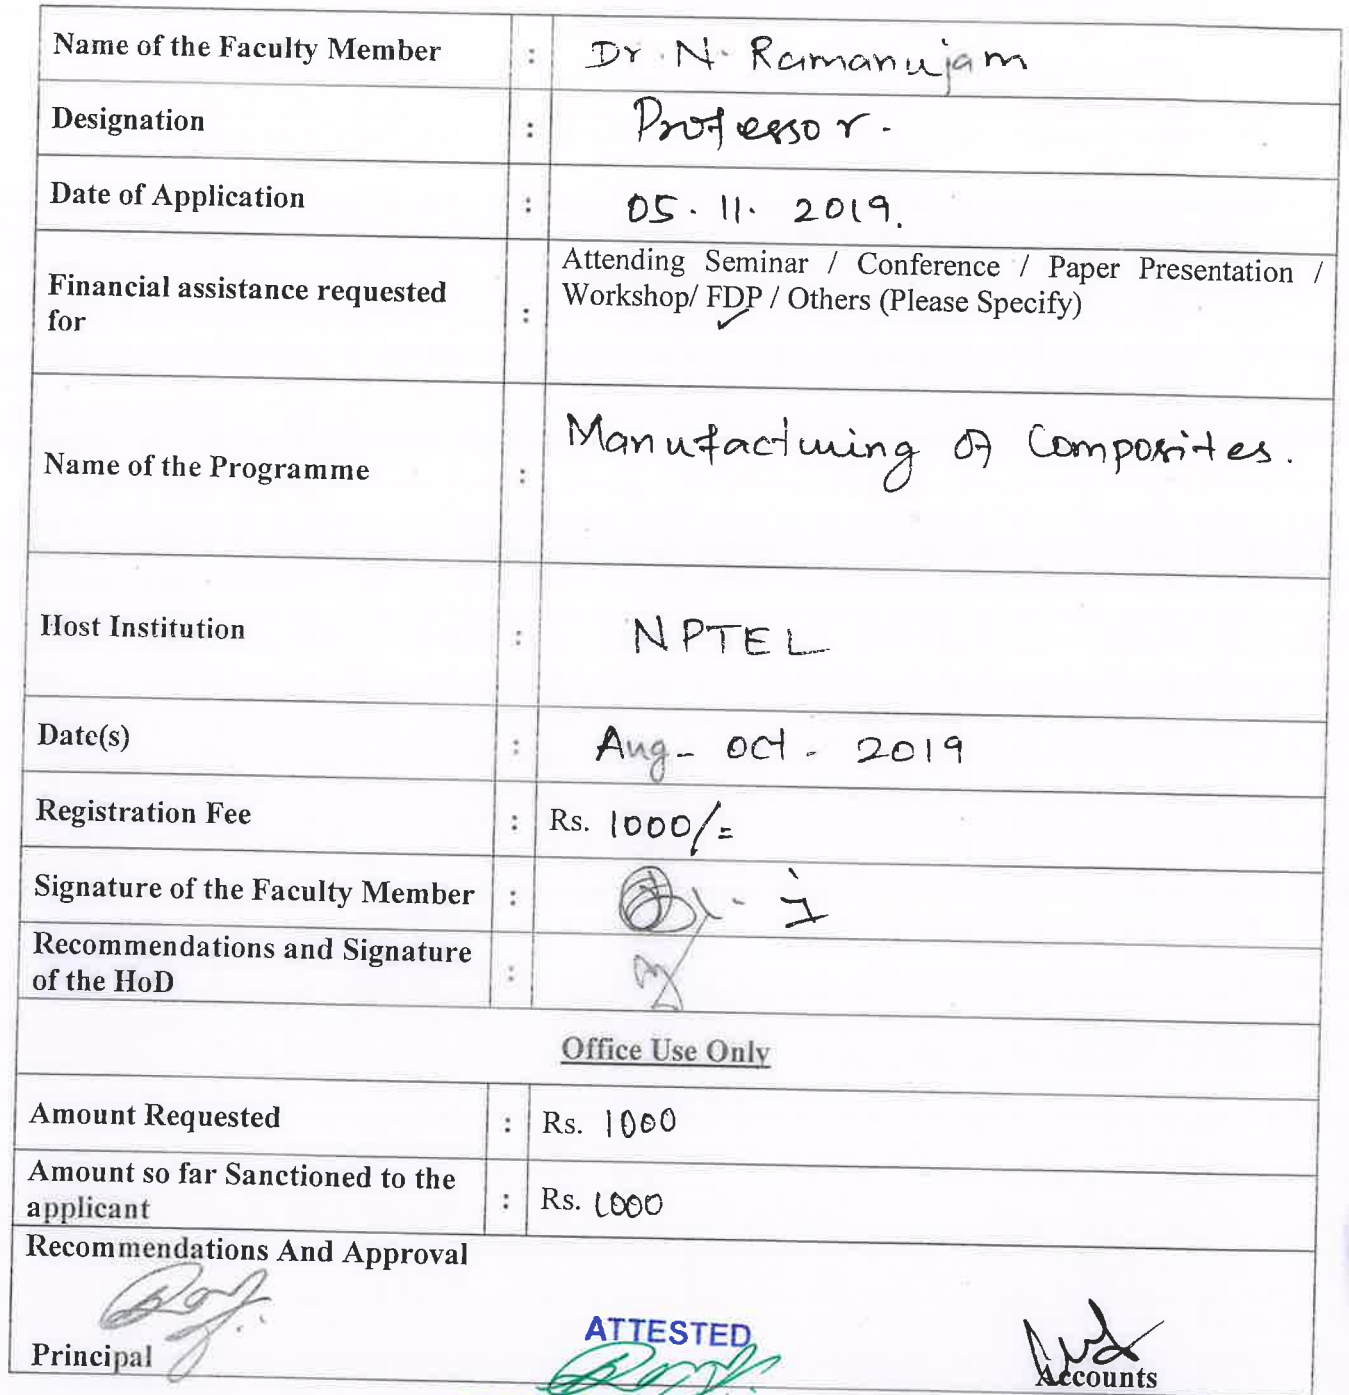 Name of the Faculty Member : Dr. N. Ramanujam
Designation : Professor.
Date of Application : 05.11.2019.
Financial assistance requested for : Attending Seminar / Conference / Paper Presentation /
Workshop/ FDP / Others (Please Specify)
Name of the Programme : Manufacturing of Composites.
Host Institution : NPTEL
Date(s) : Aug - Oct - 2019
Registration Fee : Rs. 1000/=
Signature of the Faculty Member :
Recommendations and Signature
of the HoD :
Office Use Only
Amount Requested : Rs. 1000
Amount so far Sanctioned to the
applicant : Rs. 1000
Recommendations And Approval
ATTESTED
Principal
Accounts